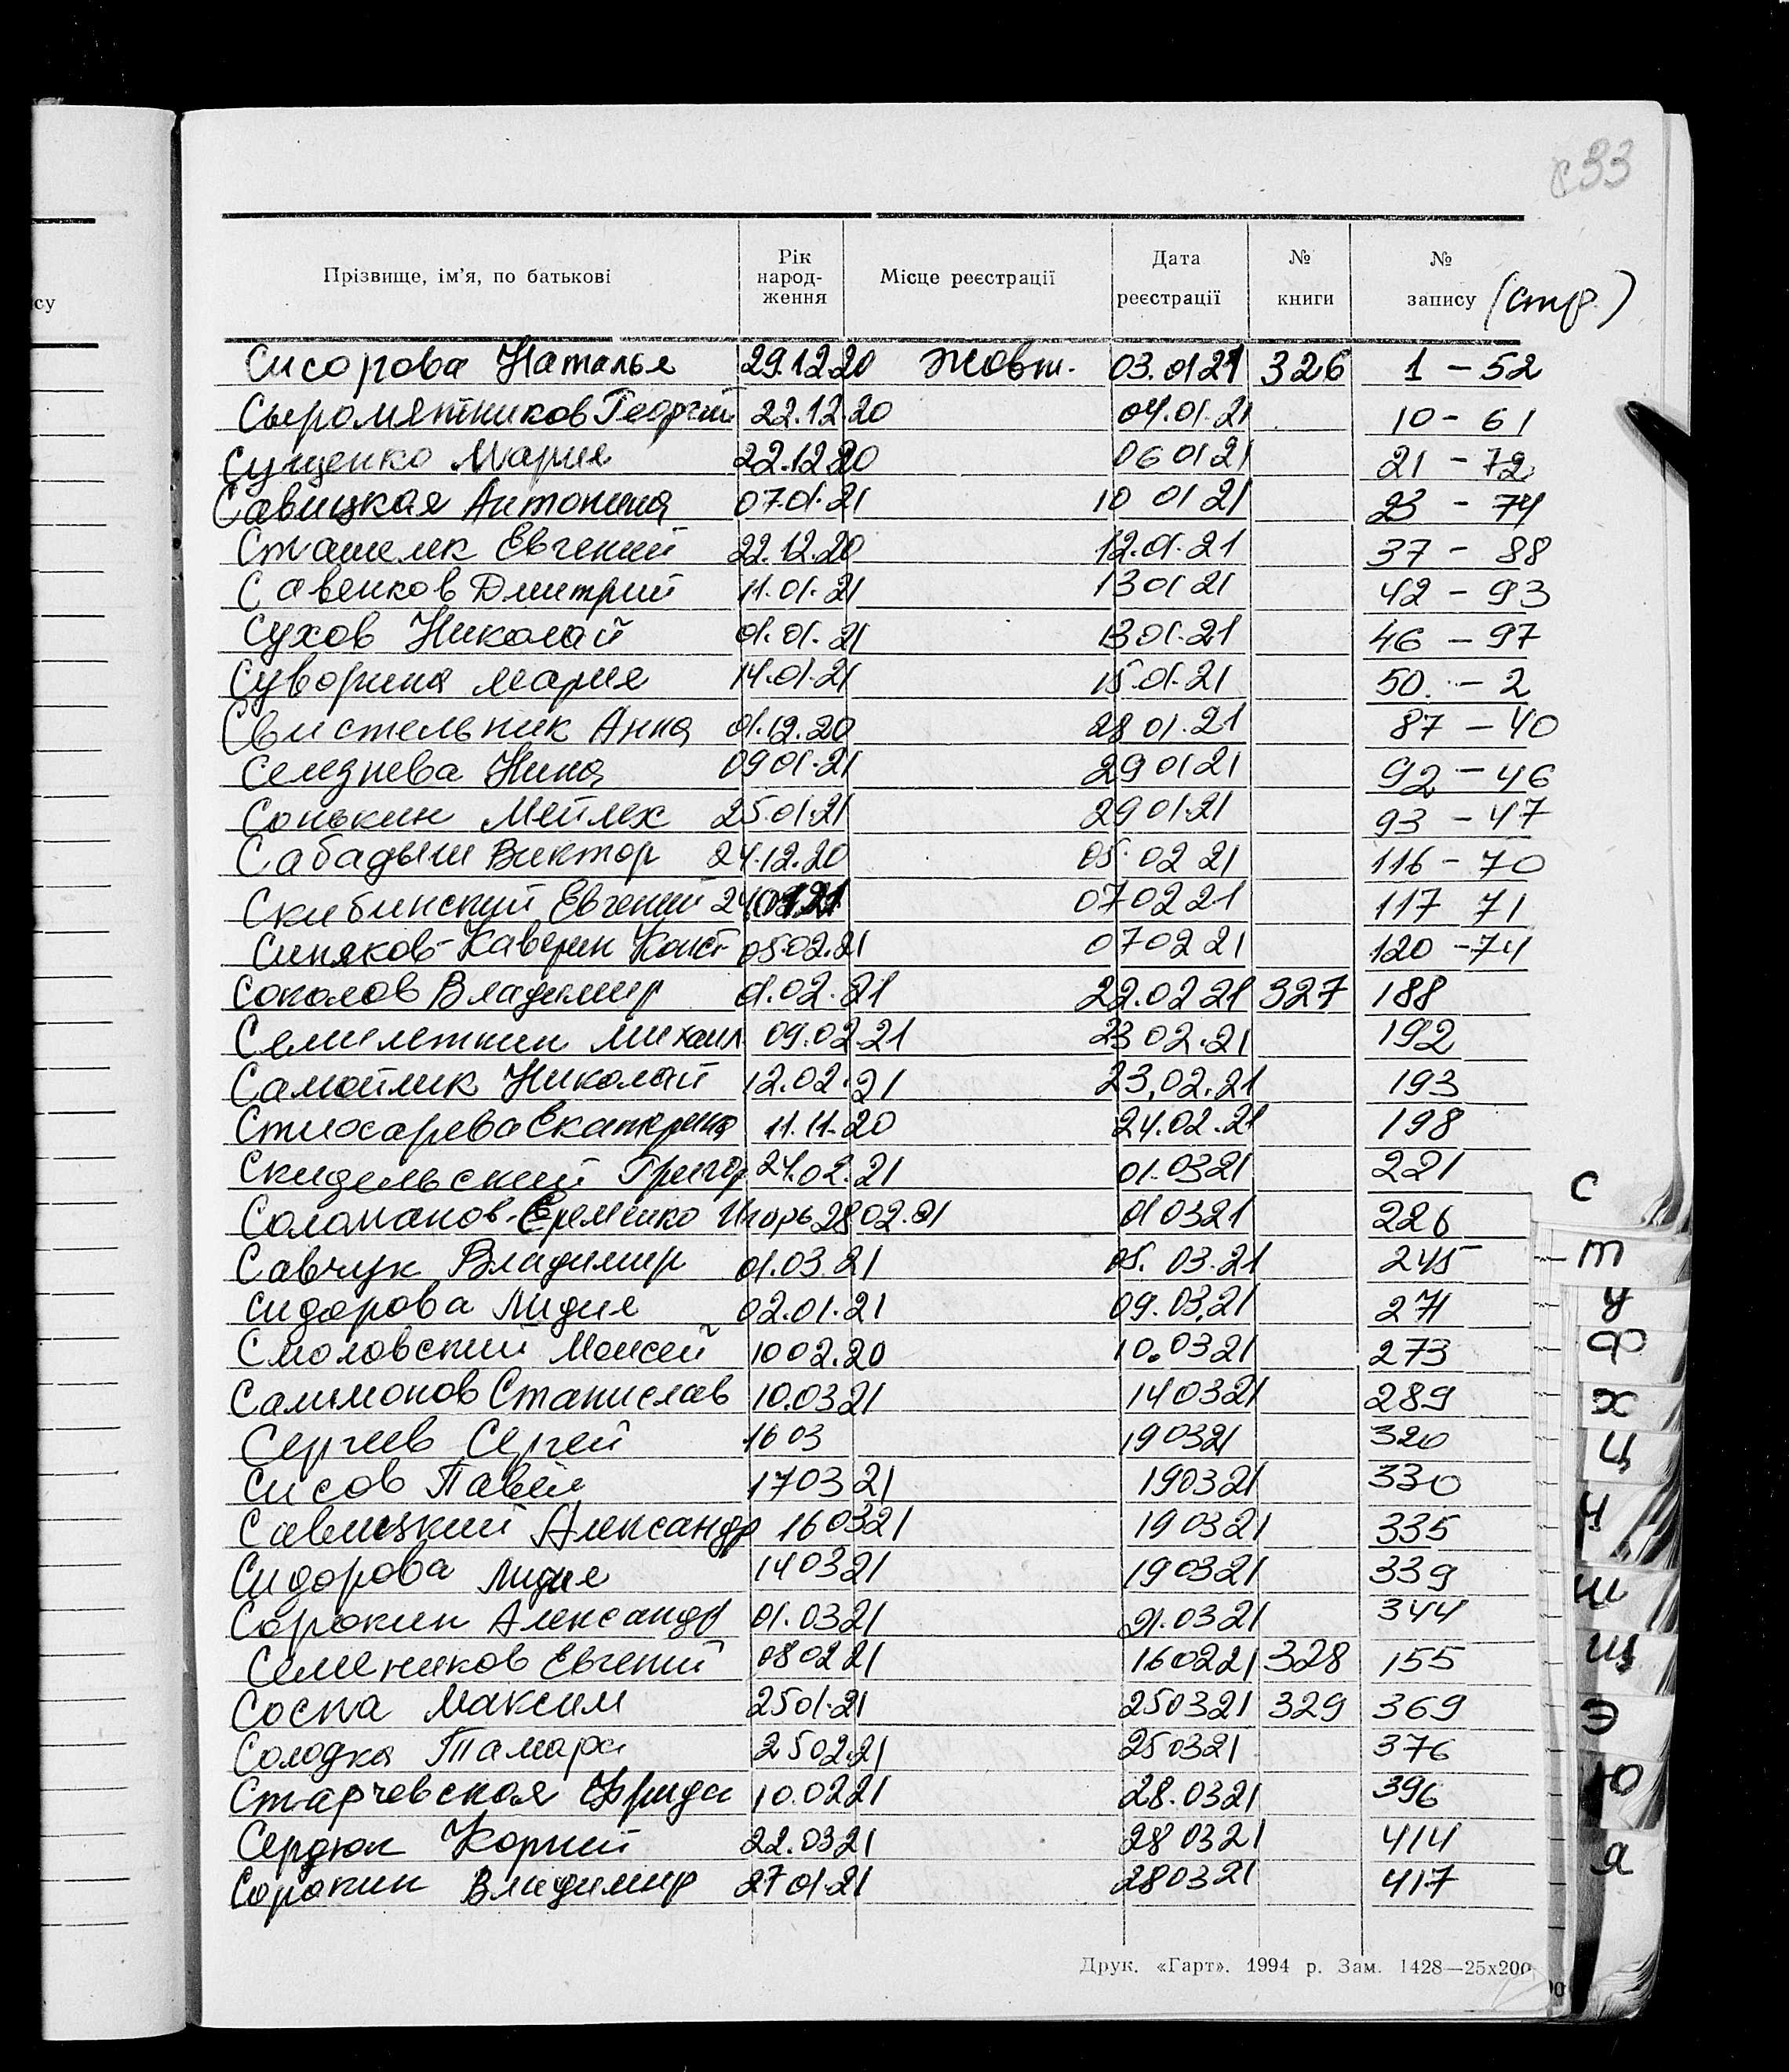 с33
су
Прізвище, ім'я, по батькові Рік народження Місце реєстрації Дата реєстрації № книги № запису (стр.)
Сисорова Наталья 29.12.20 Жовт. 03.01 21 326 1 - 52
Сыромятников Георгий 22.12.20 04.01.21 10 - 61
Сущенко Мария 22.12.20 06 01 21 21 - 72
Савицкая Антонина 07.01.21 10 01 21 23 - 74
Сташелик Евгений 22.12.20 12.01.21 37 - 88
Савенков Дмитрий 11.01.21 13 01 21 42 - 93
Сухов Николай 01.01.21 13 01.21 46 - 97
Суворина Мария 14.01.21 15.01.21 50. - 2
Свистельник Анна 01.12.20 28 01.21 87 - 40
Селезнева Нина 09 01.21 29 01 21 92 - 46
Сонькин Мейлех 25.01.21 29 01.21 93 - 47
Сабадыш Виктор 24.12.20 05.02 21 116 - 70
Скибинский Евгений 07 02 21 117 71
Синяков-Каверин Конст 05.02.21 07 02 21 120 - 74
Соколов Владимир 01.02.21 22.02 21 327 188
Семилеткин Михаил 09.02.21 23 02.21 192
Самойлик Николай 12.02.21 23.02.21 193
Стюсарева Екатерина 11.11.20 24.02.21 198
Скидельский Григор 24.02.21 01.03 21 221
Соломанов-Еременко Игорь 28 02.21 01 03 21 226
Савчук Владимир 01.03.21 05.03.21 245
Сидорова Лидия 02.01.21 09.03.21 271
Смоловский Моисей 10 02.20 10.03 21 273
Салимонов Станислав 10.03 21 14 03 21 289
Сергеев Сергей 16 03 19 03 21 320
Сисов Павел 17 03 21 19 03 21 330
Савицкий Александр 16 03 21 19 03 21 335
Сидорова Лидия 14 03 21 19 03 21 339
Сорокин Александр 01.03 21 21.03 21 344
Семеников Евгений 08 02 21 16 02 21 328 155
Соспа Максим 25 01.21 25 03 21 329 369
Солодка Тамара 25 02.21 25 03 21 376
Старчевская Фрида 10.02 21 28.03 21 396
Сердюк Корний 22.03 21 28 03 21 414
Сорокин Владимир 27 01.21 28 03 21 417
Друк. «Гарт». 1994 р. Зам. 1428—25x200
С
Т
У
Ф
Х
Ц
Ч
Ш
Щ
Э
Ю
Я